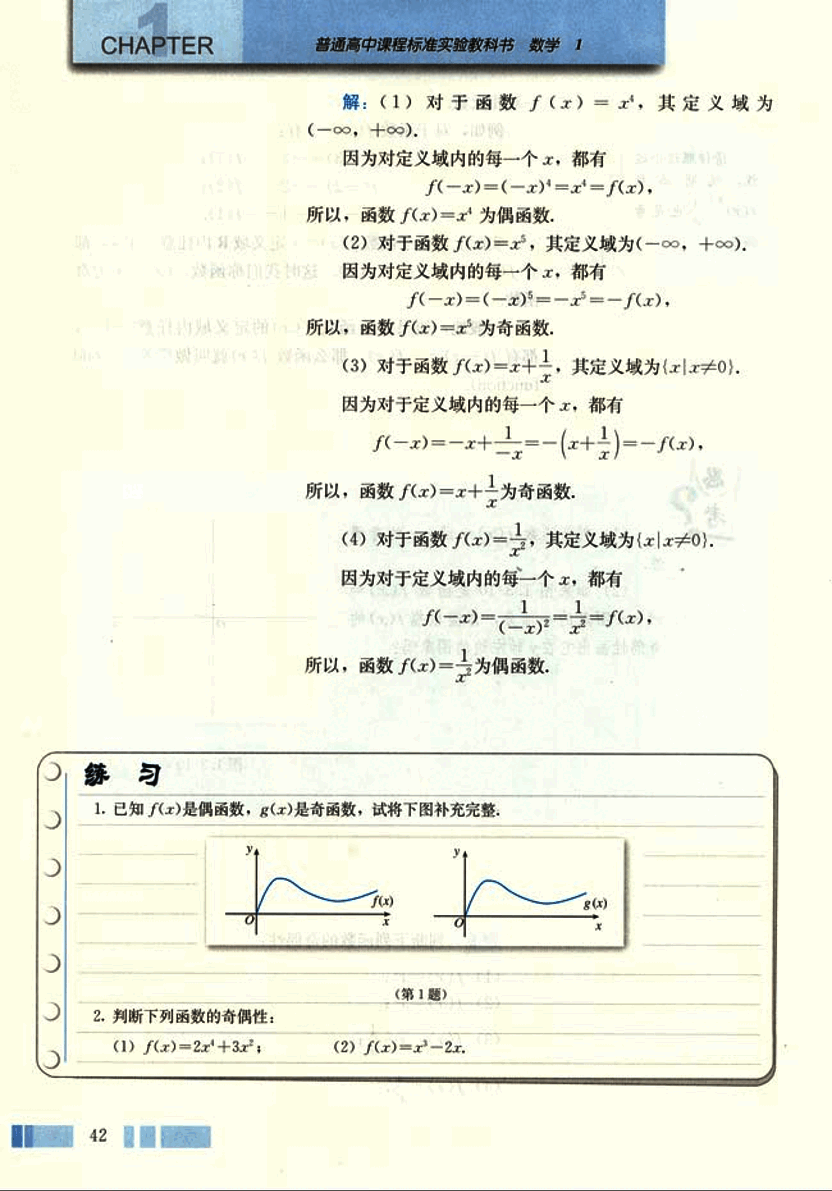 1
CHAPTER
普通高中课程标准实验教科书 数学 1
解：（1）对于函数 f(x)=x⁴，其定义域为
(−∞，+∞).
因为对定义域内的每一个 x，都有
f(−x)=(−x)⁴=x⁴=f(x)，
所以，函数 f(x)=x⁴ 为偶函数.
（2）对于函数 f(x)=x⁵，其定义域为(−∞，+∞).
因为对定义域内的每一个 x，都有
f(−x)=(−x)⁵=−x⁵=−f(x)，
所以，函数 f(x)=x⁵为奇函数.
（3）对于函数 f(x)=x+1/x，其定义域为{x|x≠0}.
因为对于定义域内的每一个 x，都有
f(−x)=−x+1/(−x)=−(x+1/x)=−f(x)，
所以，函数 f(x)=x+1/x为奇函数.
（4）对于函数 f(x)=1/x²，其定义域为{x|x≠0}.
因为对于定义域内的每一个 x，都有
f(−x)=1/(−x)²=1/x²=f(x)，
所以，函数 f(x)=1/x²为偶函数.
练 习
1. 已知 f(x)是偶函数，g(x)是奇函数，试将下图补充完整.
y f(x) O x
y g(x) O x
（第 1 题）
2. 判断下列函数的奇偶性：
（1）f(x)=2x⁴+3x²； （2）f(x)=x³−2x.
42